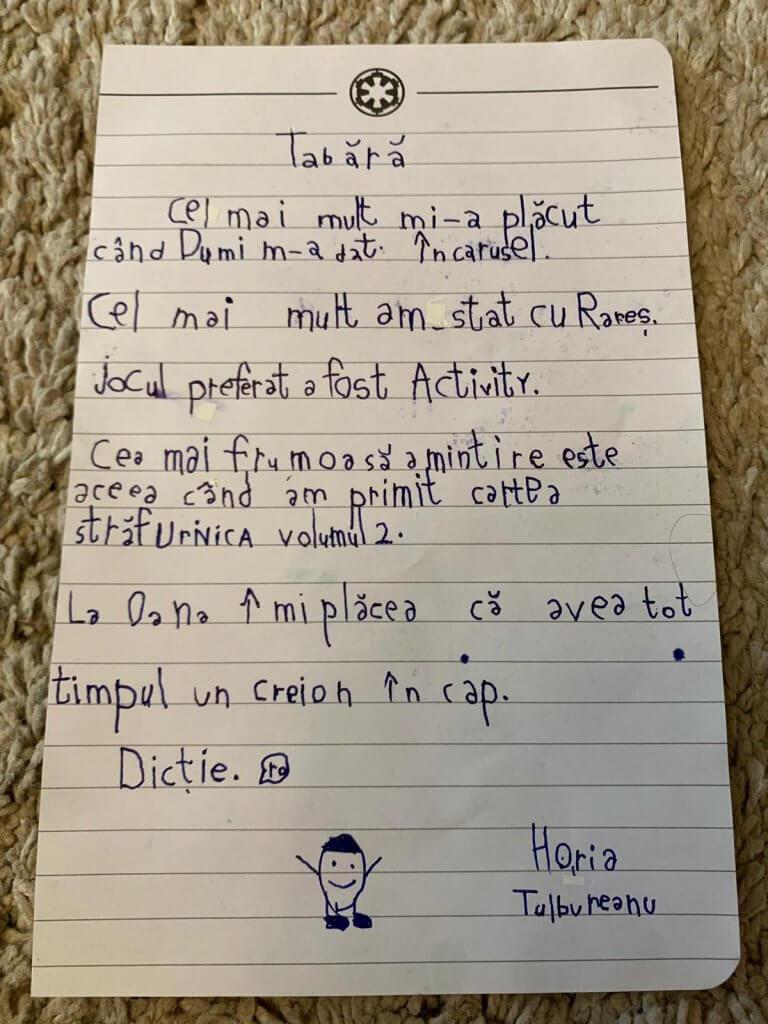 Tabără
Cel mai mult mi-a plăcut
când Dumi m-a dat în carusel.
Cel mai mult am stat cu Rareș.
Jocul preferat a fost Activity.
Cea mai frumoasă amintire este
aceea când am primit cartea
străfurnica volumul 2.
La Oana îmi plăcea că avea tot
timpul un creion în cap.
Dicție.
Horia
Tulbureanu